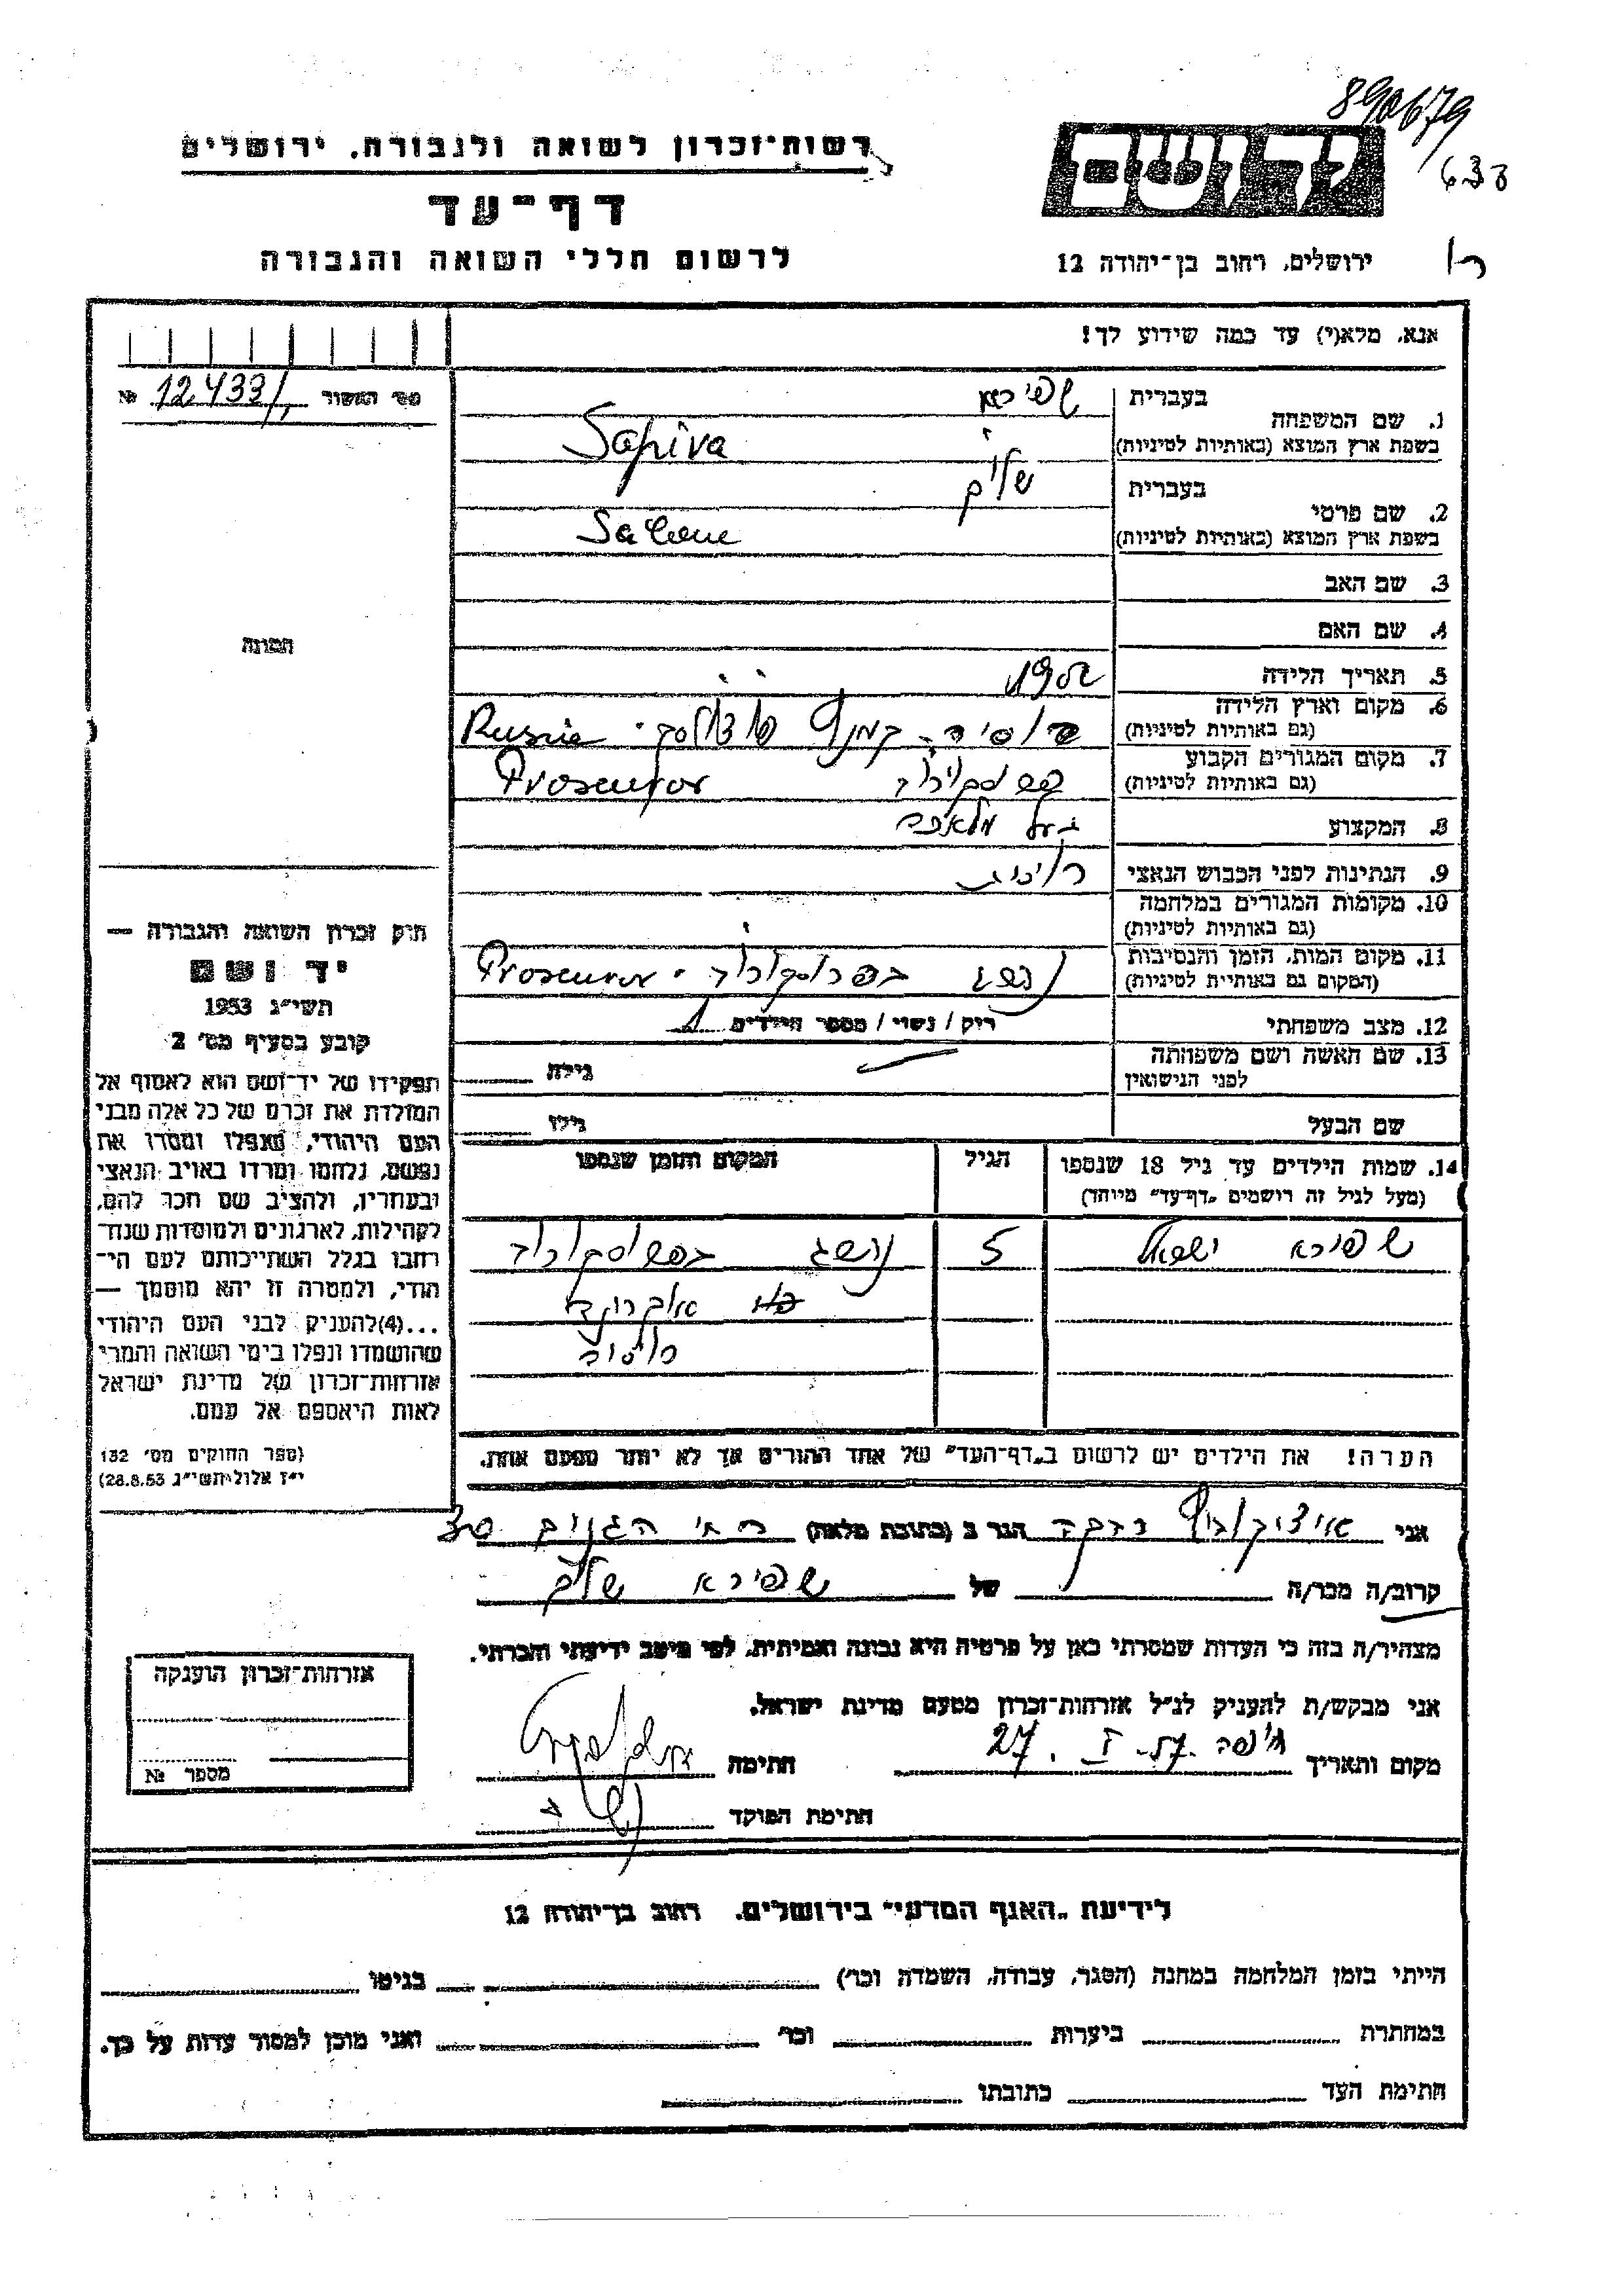 890679
רשות־זכרון לשואה ולגבורה, ירושלים
דף־עד
לרשום חללי השואה והגבורה
ידושם
ירושלים, רחוב בן־יהודה 12
אנא, מלא(י) עד כמה שידוע לך!
מס׳ האשור 12433/ №
בעברית שפירא
1. שם המשפחה
בשפת ארץ המוצא (באותיות לטיניות) Sapira
בעברית שלום
2. שם פרטי
בשפת ארץ המוצא (באותיות לטיניות)
3. שם האב
4. שם האם
תמונה
5. תאריך הלידה
6. מקום וארץ הלידה
(גם באותיות לטיניות) רוסיה Russia
7. מקום המגורים הקבוע
(גם באותיות לטיניות) פרוסקורוב Proscurov
8. המקצוע בעל מלאכה
9. הנתינות לפני הכבוש הנאצי
10. מקומות המגורים במלחמה
(גם באותיות לטיניות)
11. מקום המות, הזמן והנסיבות
(המקום גם באותיות לטיניות) נהרג בפרוסקורוב. Proscurov
12. מצב משפחתי רוק / נשוי / מספר הילדים 1
13. שם האשה ושם משפחתה
לפני הנישואין גילה
שם הבעל גילו
14. שמות הילדים עד גיל 18 שנספו הגיל המקום והזמן שנספו
(מעל לגיל זה רושמים „דף־עד״ מיוחד)
שפירא ישראל 5 נהרג בפרוסקורוב
הערה! את הילדים יש לרשום ב„דף־העד״ של אחד ההורים אך לא יותר מפעם אחת.
חוק זכרון השואה והגבורה —
יד ושם
תשי״ג 1953
קובע בסעיף מס׳ 2
תפקידו של יד־ושם הוא לאסוף אל
המולדת את זכרם של כל אלה מבני
העם היהודי, שנפלו ומסרו את
נפשם, נלחמו ומרדו באויב הנאצי
ובעוזריו, ולהציב שם וזכר להם,
לקהילות, לארגונים ולמוסדות שנח־
רבו בגלל השתייכותם לעם הי־
הודי, ולמטרה זו יהא מוסמך —
...(4)להעניק לבני העם היהודי
שהושמדו ונפלו בימי השואה והמרי
אזרחות־זכרון של מדינת ישראל
לאות היאספם אל עמם.
(ספר החוקים מס׳ 132
י״ז אלול תשי״ג 28.8.53)
אני איצקוביץ רבקה הגר ב (כתובת מלאה)
קרוב/ה מכר/ה של שפירא שלום
מצהיר/ה בזה כי העדות שמסרתי כאן על פרטיה היא נכונה ואמיתית, לפי מיטב ידיעתי והכרתי.
אני מבקש/ת להעניק לנ״ל אזרחות־זכרון מטעם מדינת ישראל.
מקום ותאריך חיפה 27. I. 57. חתימה
חתימת הפוקד
אזרחות־זכרון הוענקה
מספר №
לידיעת „האגף המדעי״ בירושלים, רחוב בן־יהודה 12
הייתי בזמן המלחמה במחנה (הסגר, עבודה, השמדה וכו׳) בגיטו
במחתרת ביערות וכו׳ ואני מוכן למסור עדות על כך.
חתימת העד כתובתו